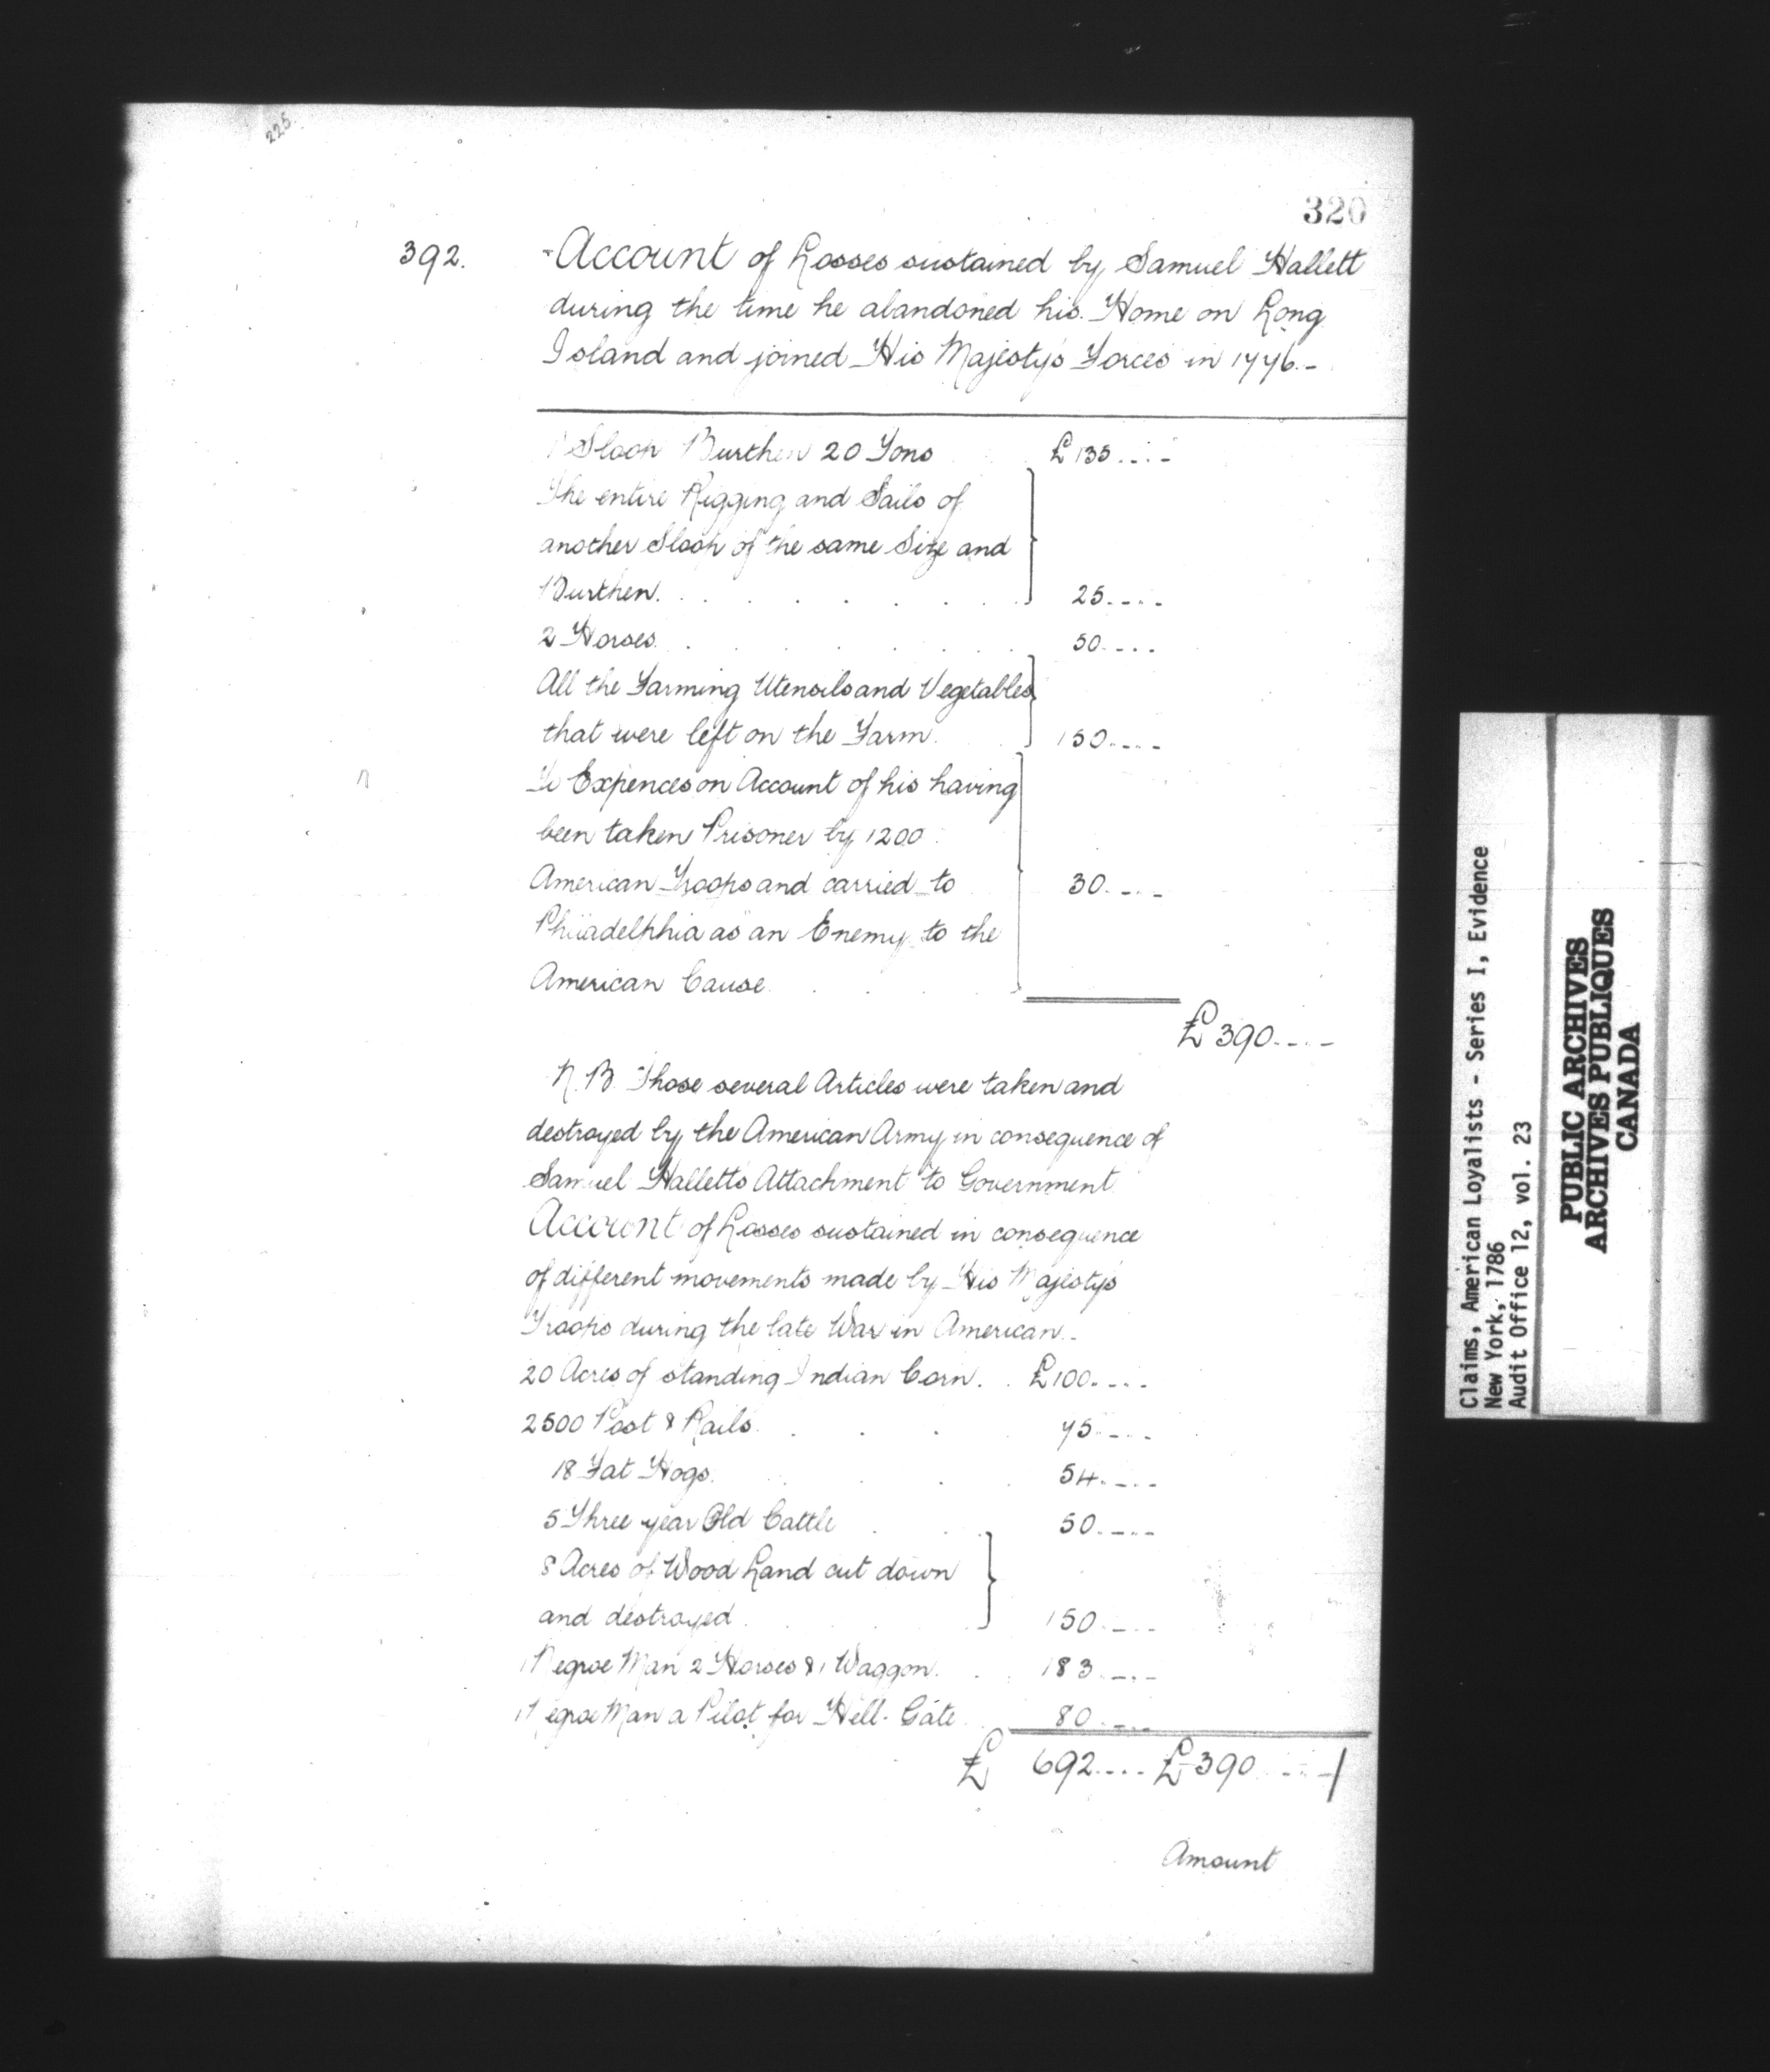 225.
320
392. Account of Losses sustained by Samuel Hallett
during the time he abandoned his Home on Long
Island and joined His Majesty's Forces in 1776.-
1 Sloop Burthen 20 Tons £135 .. . -
The entire Rigging and Sails of
another Sloop of the same Size and
Burthen. . . . . . . . . 25. - . -
2 Horses. . . . . . . . 50. - . -
All the Farming Utensils and Vegetables
that were left on the Farm. . 150. - . -
To Expences on Account of his having
been taken Prisoner by 1200
American Troops and carried to 30. - . -
Philadelphia as an Enemy to the
American Cause . . .
£390. - . -
N.B Those several Articles were taken and
destroyed by the American Army in consequence of
Samuel Hallett's Attachment to Government
Account of Losses sustained in consequence
of different movements made by His Majesty's
Troops during the late War in American.-
20 Acres of standing Indian Corn. . £100. - . -
2500 Post & Rails. . . . 75. - . -
18 Fat Hogs. . . . 54. - . -
5 Three year Old Cattle . . . 50. - . -
8 Acres of Wood Land cut down
and destroyed . . . . 150. - . -
1 Negroe Man 2 Horses & 1 Waggon. . 183. - . -
1 Negroe Man a Pilot for Hell-Gate . 80. - . -
£ 692. - . - £390 - . -
Amount
Claims, American Loyalists - Series I, Evidence
New York, 1786
Audit Office 12, vol. 23
PUBLIC ARCHIVES
ARCHIVES PUBLIQUES
CANADA